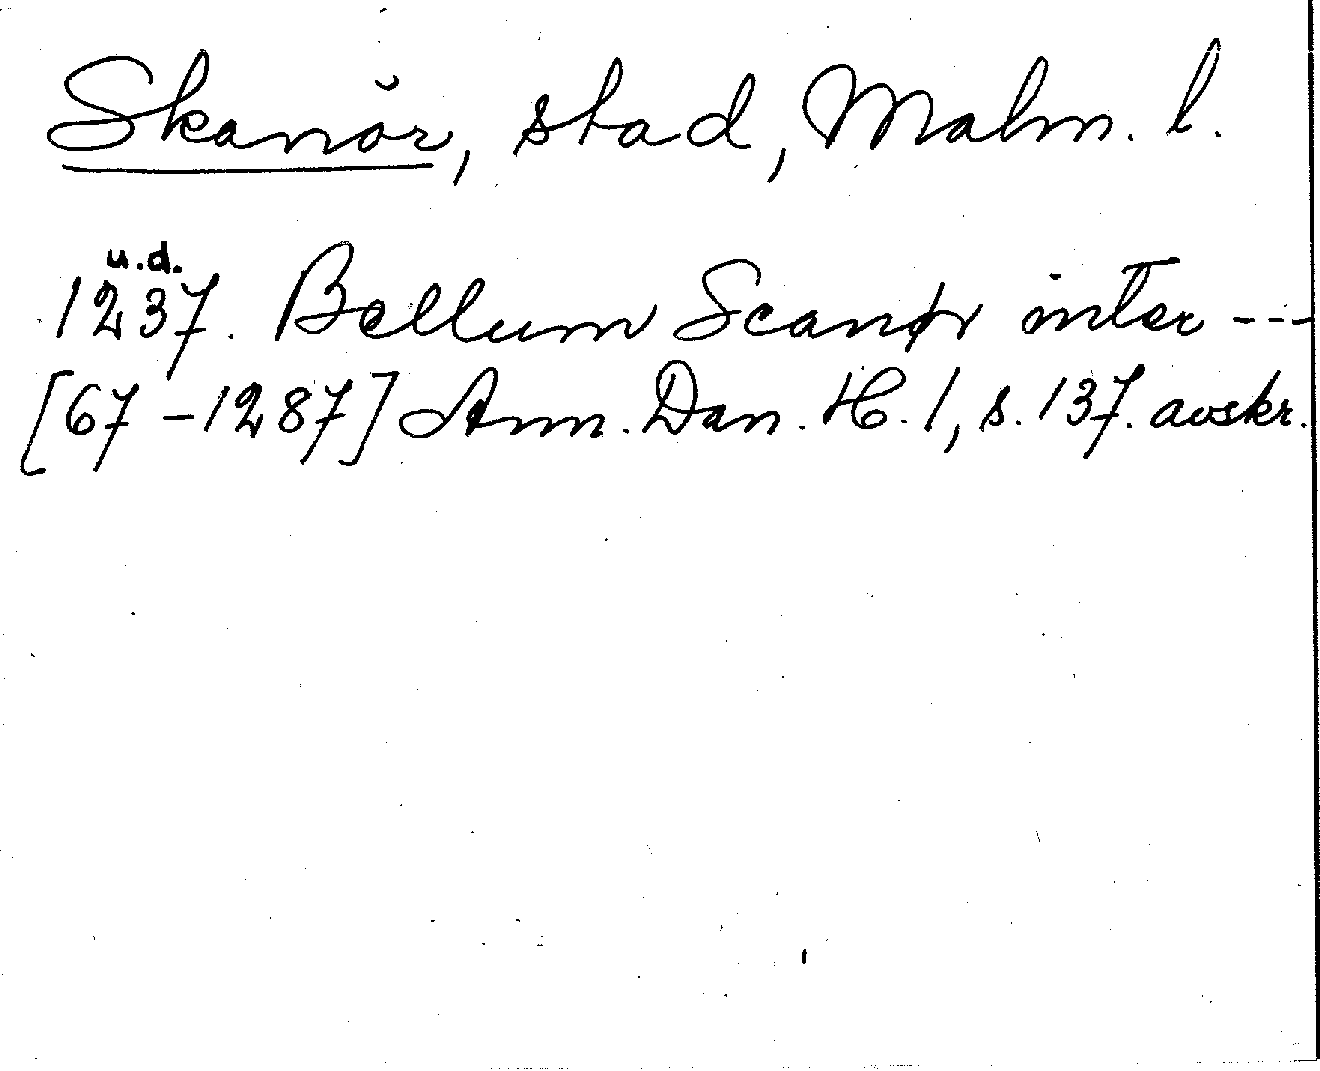 Skanör, stad, Malm. l.
u.d.
1237. Bellum Scanør inter ---
[67-1287] Ann. Dan. H. 1, s. 137. avskr.